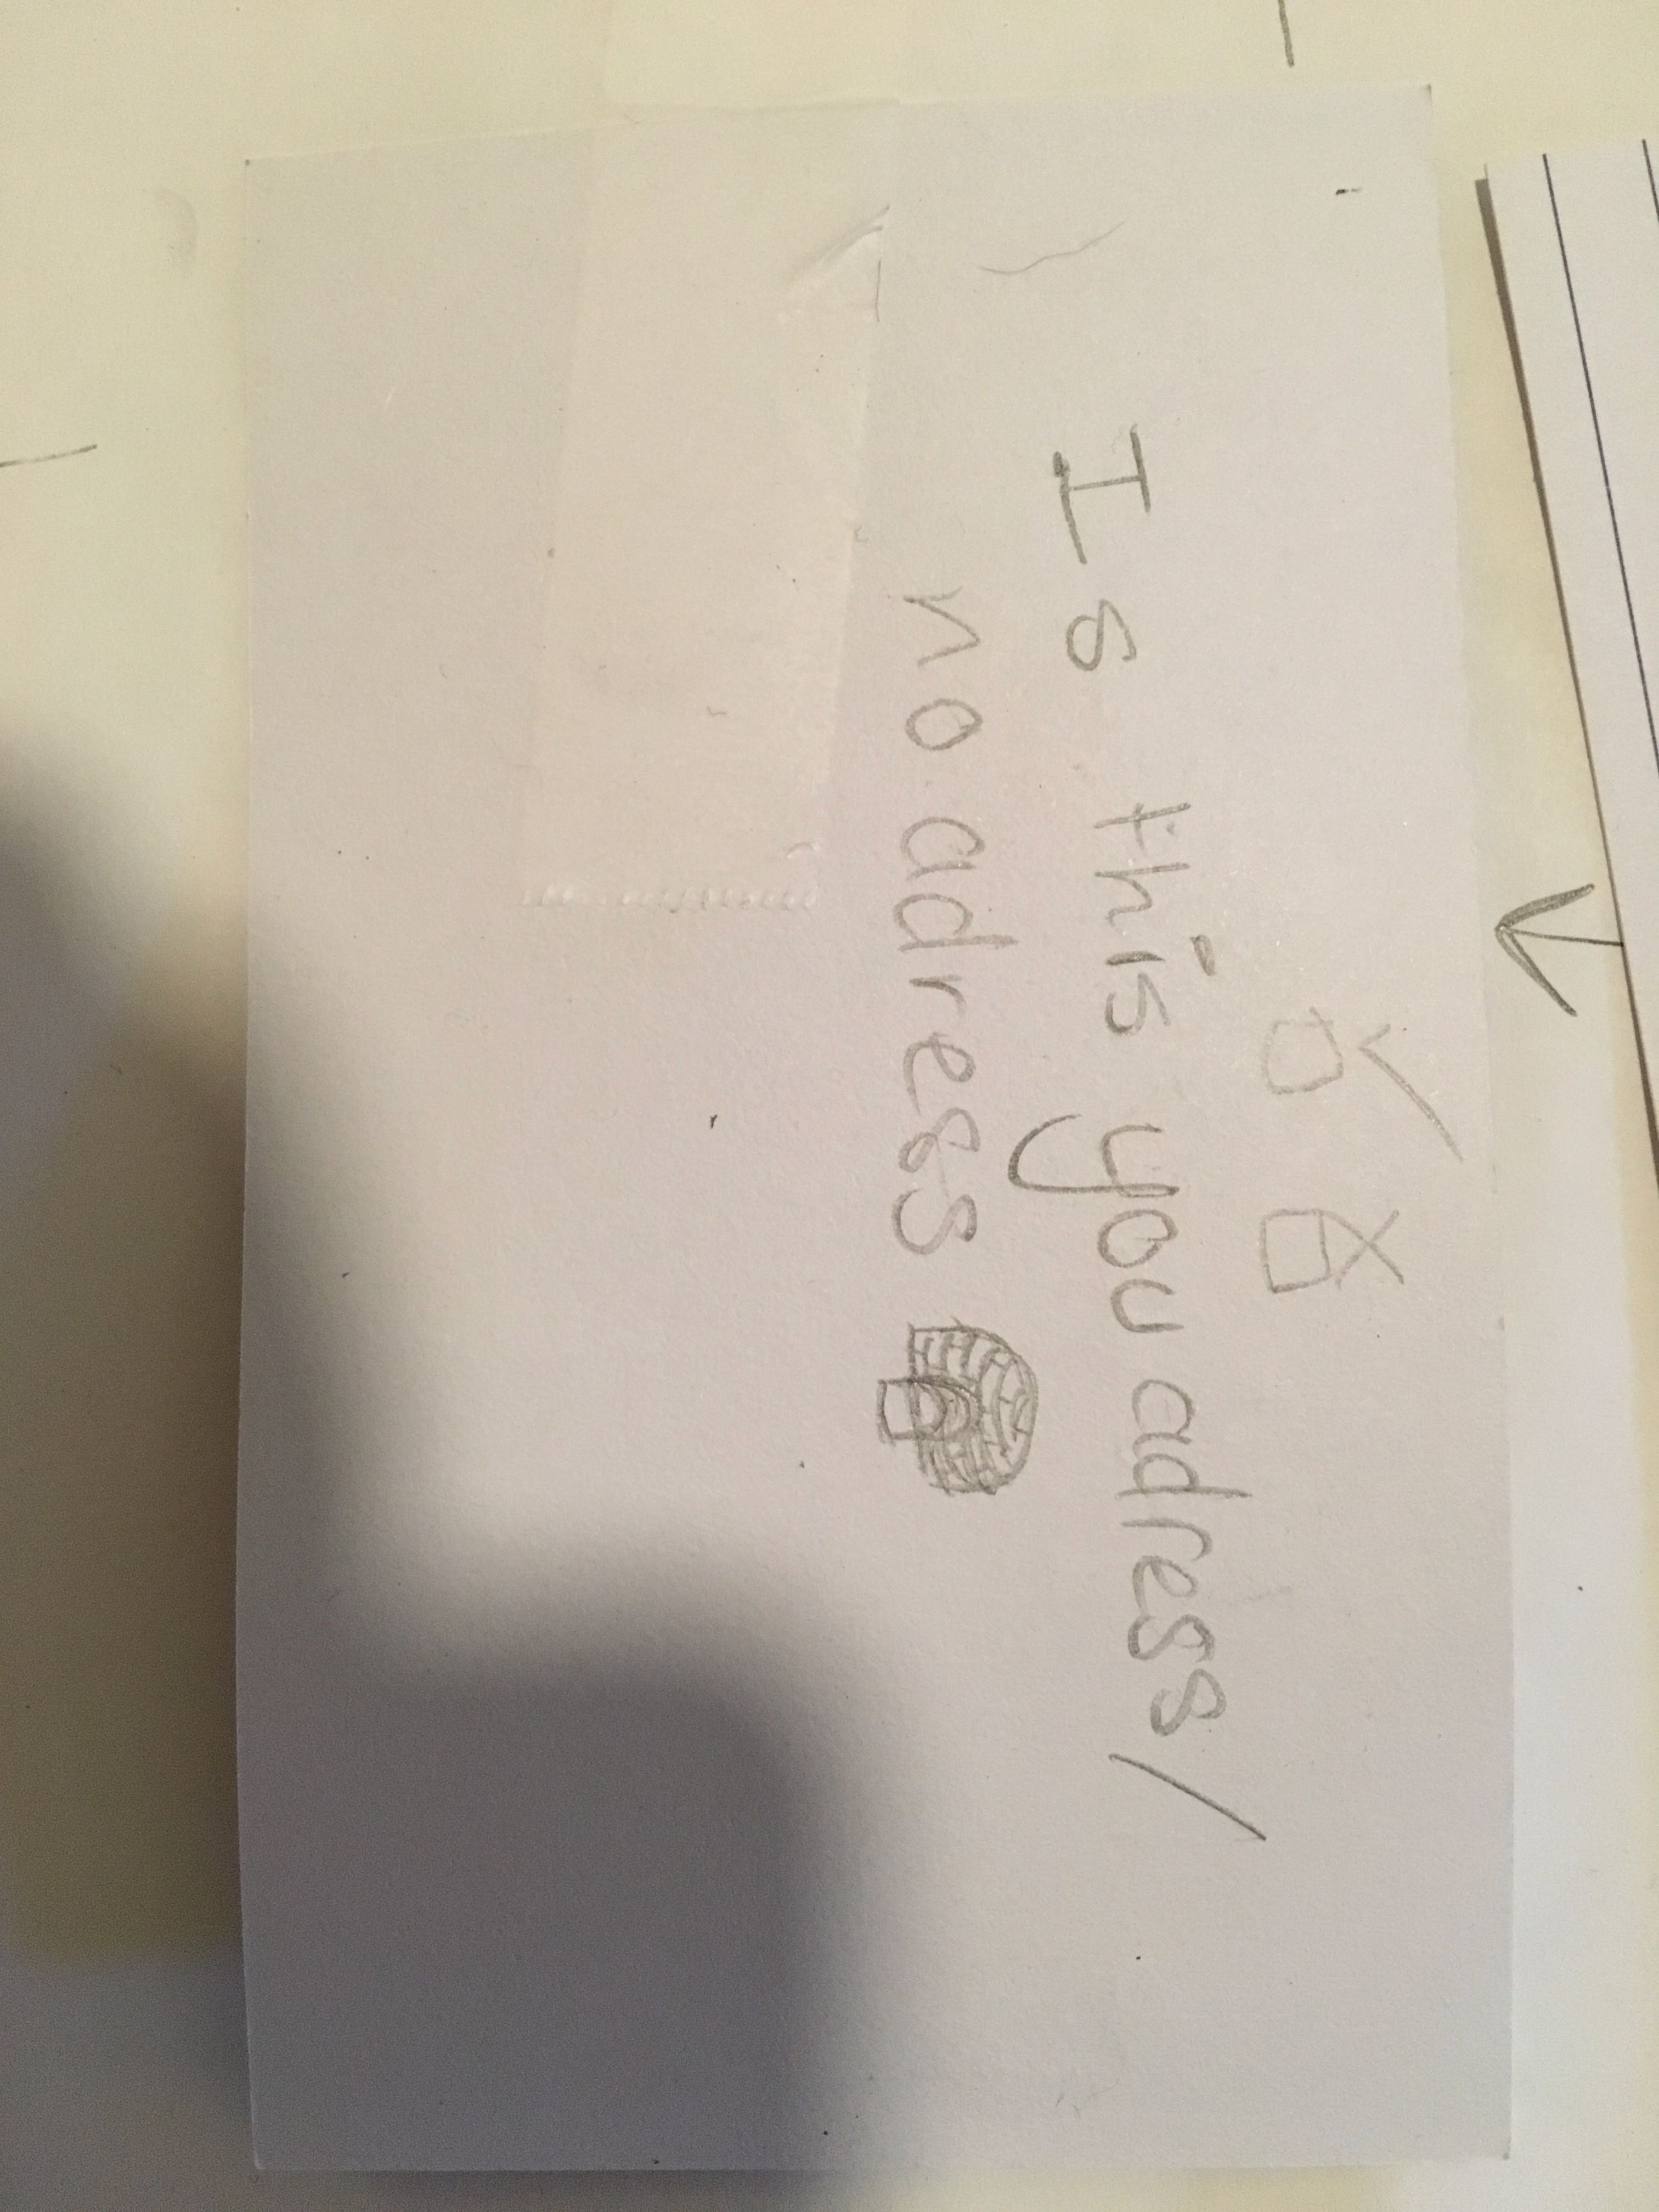 Is this you adress/
no adress